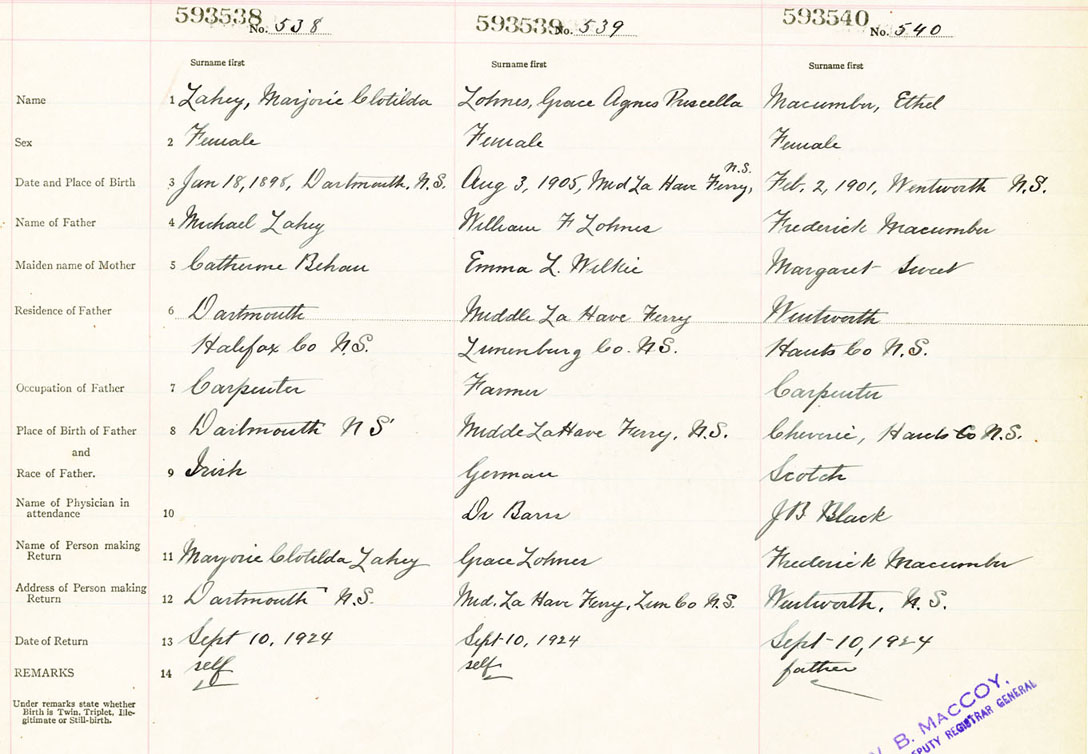 593538 No. 538 593539 No. 539 593540 No. 540
Surname first Surname first Surname first
Name 1 Lahey, Marjorie Clotilda Lohnes, Grace Agnes Priscella Macumber, Ethel
Sex 2 Female Female Female
N.S.
Date and Place of Birth 3 Jan 18, 1898, Dartmouth, N.S. Aug 3, 1905, Mid La Have Ferry, Feb. 2, 1901, Wentworth N.S.
Name of Father 4 Michael Lahey William F Lohnes Frederick Macumber
Maiden name of Mother 5 Catherine Behan Emma L. Wilkie Margaret Sweet
Residence of Father 6 Dartmouth Middle La Have Ferry Wentworth
Halifax Co N.S. Lunenburg Co. N.S. Hants Co N.S.
Occupation of Father 7 Carpenter Farmer Carpenter
Place of Birth of Father 8 Dartmouth N S Midde LaHave Ferry, N.S. Cheverie, Hants Co N.S.
and
Race of Father. 9 Irish German Scotch
Name of Physician in
attendance 10 Dr J B Black
Name of Person making
Return 11 Marjorie Clotilda Lahey Grace Lohnes Frederick Macumber
Address of Person making
Return 12 Dartmouth N.S. Mid. La Have Ferry, Lun Co N.S. Wentworth, N.S.
Date of Return 13 Sept 10, 1924 Sept 10, 1924 Sept 10, 1924
REMARKS 14 self self father
Under remarks state whether
Birth is Twin, Triplet, Ille-
gitimate or Still-birth.
B. MACCOY,
DEPUTY REGISTRAR GENERAL